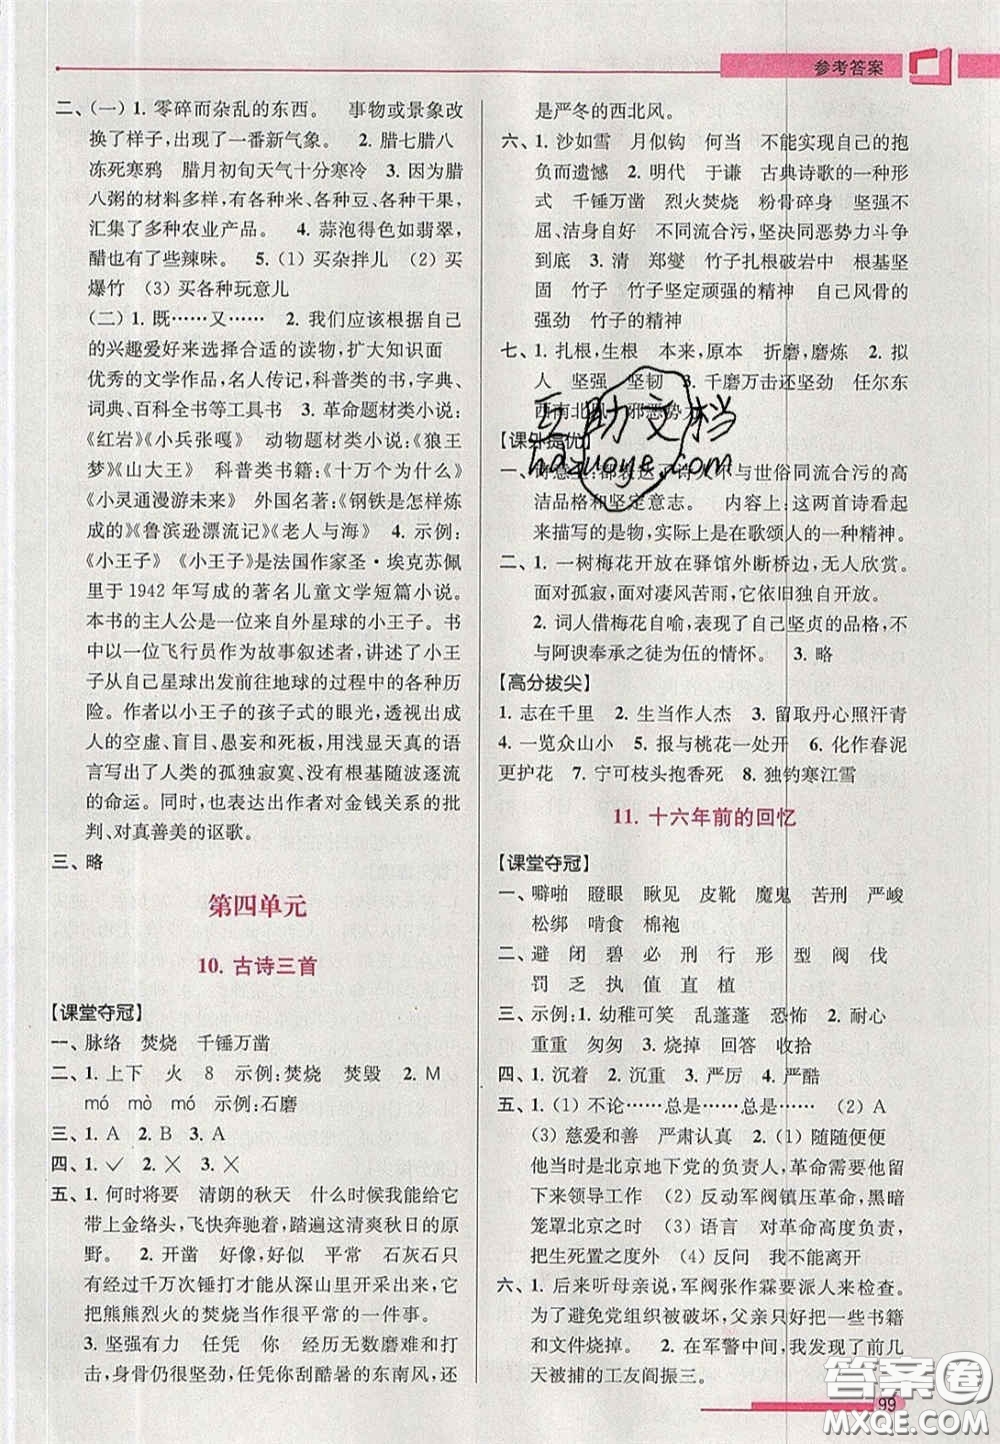 参考答案
二、(一) 1. 零碎而杂乱的东西。 事物或景象改
换了样子,出现了一番新气象。 2. 腊七腊八
冻死寒鸦 腊月初旬天气十分寒冷 3. 因为腊
八粥的材料多样,有各种米、各种豆、各种干果,
汇集了多种农业产品。 4. 蒜泡得色如翡翠,
醋也有了些辣味。 5. (1) 买杂拌儿 (2) 买
爆竹 (3) 买各种玩意儿
(二) 1. 既……又…… 2. 我们应该根据自己
的兴趣爱好来选择合适的读物,扩大知识面
优秀的文学作品,名人传记,科普类的书,字典、
词典、百科全书等工具书 3. 革命题材类小说:
《红岩》《小兵张嘎》 动物题材类小说:《狼王
梦》《山大王》 科普类书籍:《十万个为什么》
《小灵通漫游未来》 外国名著:《钢铁是怎样炼
成的》《鲁滨逊漂流记》《老人与海》 4. 示例:
《小王子》 《小王子》是法国作家圣·埃克苏佩
里于1942年写成的著名儿童文学短篇小说。
本书的主人公是一位来自外星球的小王子。书
中以一位飞行员作为故事叙述者,讲述了小王
子从自己星球出发前往地球的过程中的各种历
险。作者以小王子的孩子式的眼光,透视出成
人的空虚、盲目、愚妄和死板,用浅显天真的语
言写出了人类的孤独寂寞、没有根基随风流浪
的命运。同时,也表达出作者对金钱关系的批
判、对真善美的讴歌。
三、略
第四单元
10. 古诗三首
【课堂夺冠】
一、脉络 焚烧 千锤万凿
二、1. 上下 火 8 示例:焚烧 焚毁 2. M
mó mò mó 示例:石磨
三、1. A 2. B 3. A
四、1. ✓ 2. ✕ 3. ✕
五、1. 何时将要 清朗的秋天 什么时候我能给它
带上金络头,飞快奔驰着,踏遍这清爽秋日的原
野。 2. 开凿 好像,好似 平常 石灰石只
有经过千万次锤打才能从深山里开采出来,它
把熊熊烈火的焚烧当作很平常的一件事。
3. 坚强有力 任凭 你 经历无数磨难和打
击,身骨仍很坚劲,任你刮酷暑的东南风,还
是严冬的西北风。
六、1. 沙如雪 月似钩 何当 不能实现自己的抱
负而遗憾 2. 明代 于谦 古典诗歌的一种形
式 千锤万凿 烈火焚烧 粉骨碎身 坚强不
屈、高尚 不同流合污,坚决同恶势力斗争
到底 3. 清 郑燮 竹子扎根破岩中 根基坚
固 竹子 竹子坚定顽强的精神 自己风骨的
强劲 竹子的精神
七、1. 扎根,生根 本来,原本 折磨,磨炼 2. 拟
人 坚强 坚韧 3. 千磨万击还坚劲 任尔东
西南北风 邪恶势力
【课外提优】
一、诗意上:都表达了诗人不与世俗同流合污的高
洁品格和坚定意志。 内容上:这两首诗
来描写的是物,实际上是在歌颂人的一种精神。
二、1. 一树梅花开放在驿馆外断桥边,无人欣赏。
面对孤寂,面对凄风苦雨,它依旧独自开放。
2. 词人借梅花自喻,表现了自己坚贞的品格,不
与阿谀奉承之徒为伍的情怀。 3. 略
【高分拔尖】
1. 志在千里 2. 生当作人杰 3. 留取丹心照汗青
4. 一览众山小 5. 报与桃花一处开 6. 化作春泥
更护花 7. 宁可枝头抱香死 8. 独钓寒江雪
11. 十六年前的回忆
【课堂夺冠】
一、噼啪 瞪眼 瞅见 皮靴 魔鬼 苦刑 严峻
松绑 啃食 棉袍
二、避 闭 碧 必 刑 行 形 型 阀 伐
罚 乏 执 值 直 植
三、示例:1. 幼稚可笑 乱蓬蓬 恐怖 2. 耐心
重重 匆匆 3. 烧掉 回答 收拾
四、1. 沉着 2. 沉重 3. 严厉 4. 严酷
五、1. (1) 不论……总是……总是…… (2) A
(3) 慈爱和善 严肃认真 2. (1) 随随便便
他当时是北京地下党的负责人,需要他
留下来领导工作 (2) 反动军阀镇压革命,黑暗
笼罩北京之时 (3) 语言 对革命高度负责,
把生死置之度外 (4) 反问 我不能离开
六、1. 后来听母亲说,军阀张作霖要派人来检查。
为了避免党组织被破坏,父亲只好把一些书籍
和文件烧掉。 2. 在军警中间,我发现了前几
天被捕的工友阎振三。
互助文档
hdzuoye.com
答案圈
MXQE.COM
99